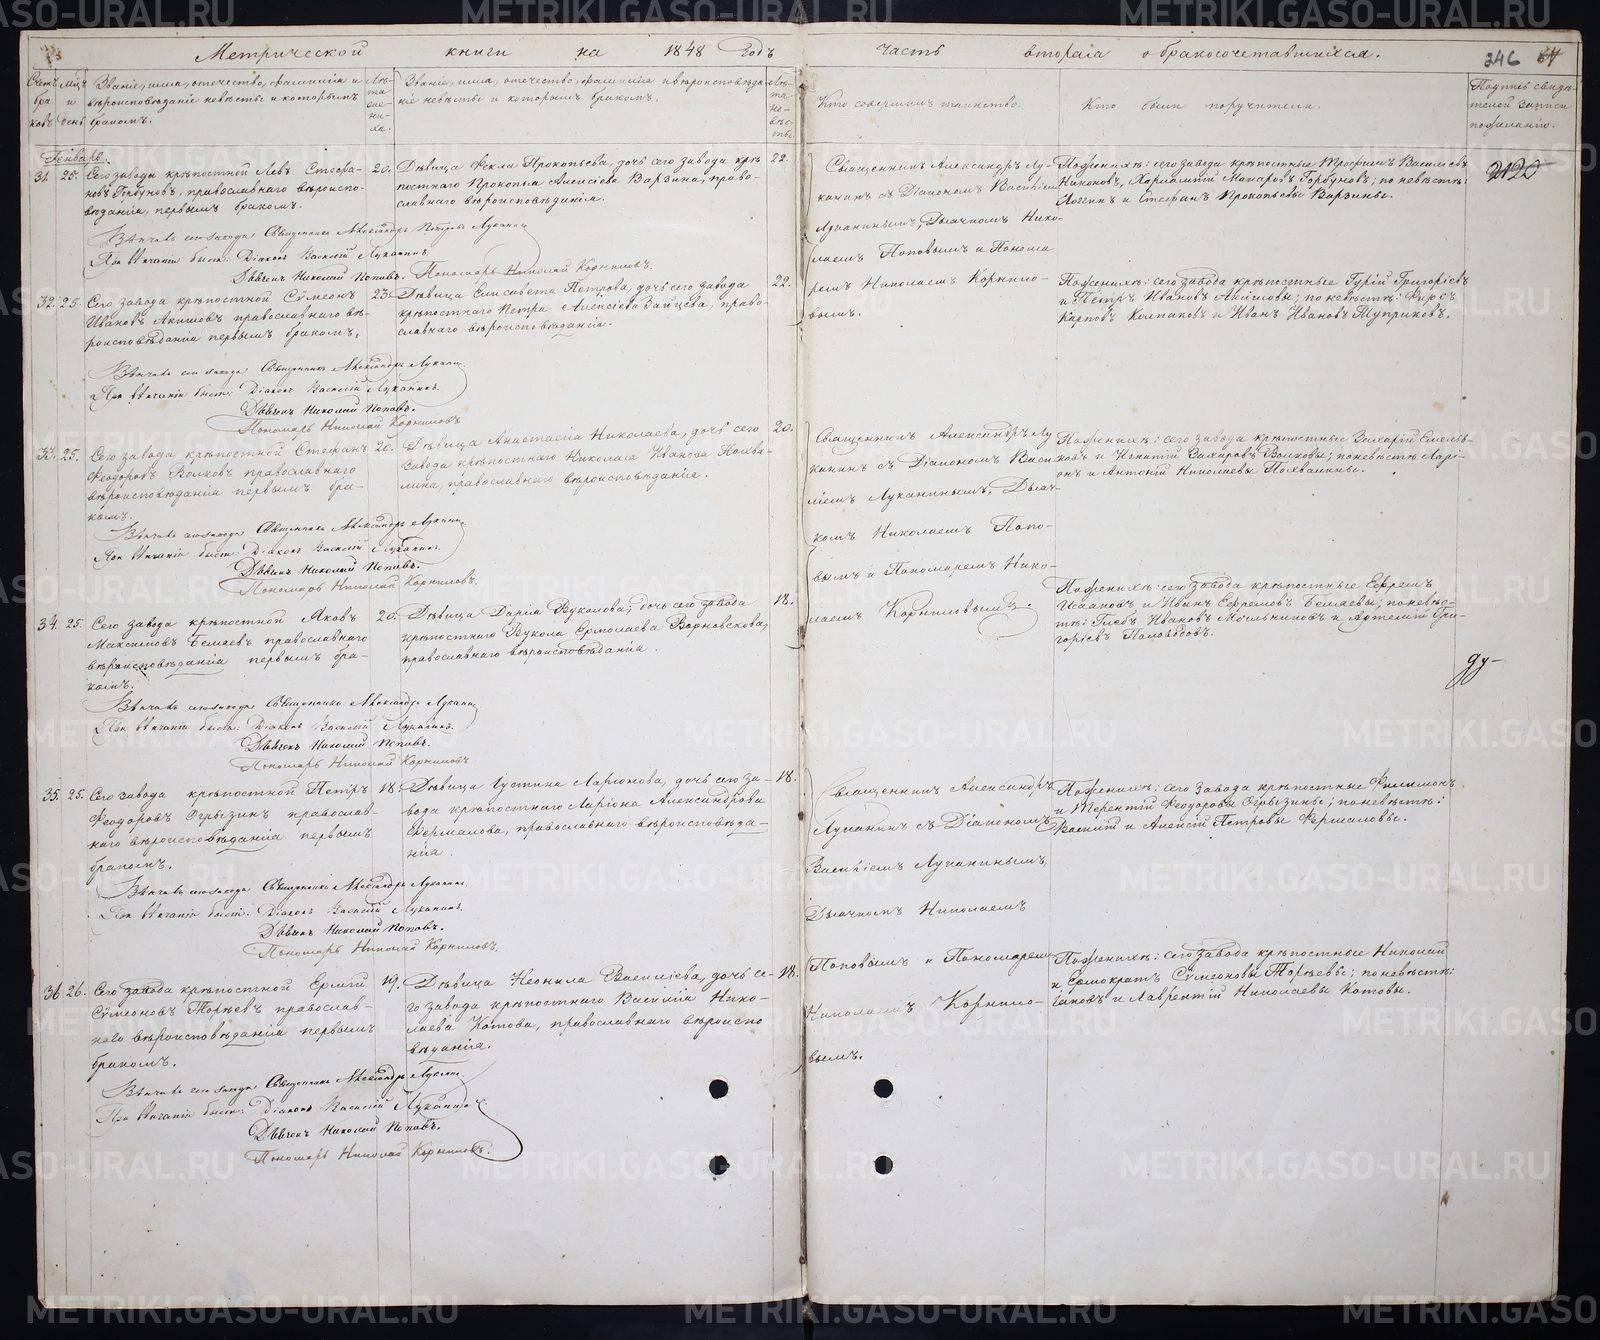 Метрической книги на 1848 годъ часть вторая о бракосочетавшихся.
346
Звание, имя, отечество, фамилия и
вѣроисповѣданіе невѣсты и которымъ
бракомъ.
Кто совершилъ таинство.
Кто были поручители.
Подпись свидѣ-
телей записи
по желанію.
Генварь.
31. 25. Сего завода крѣпостной Левъ Стефа-
новъ Горбуновъ, православнаго вѣроиспо-
вѣданія, первымъ бракомъ.
20.
Дѣвица Фекла Прокопьева, дочь сего завода крѣ-
постнаго Прокопья Алексѣева Варзина, право-
славнаго вѣроисповѣданія.
22.
Священникъ Александръ Лу-
канинъ съ Діакономъ Василіемъ
Луканинымъ, Дьячкомъ Нико-
лаемъ Поповымъ и Понома
ремъ Николаемъ Корнило-
вымъ.
По женихѣ: сего завода крѣпостные Трофимъ Васильевъ
Никоновъ, Харлампій Макаровъ Горбуновъ; по невѣстѣ:
Логгинъ и Стефанъ Прокопьевы Варзины.
2120
Вѣнчалъ сего завода Священникъ Александръ Петровъ Луканин
При вѣнчаніи были: Діаконъ Василій Луканинъ.
Дьячекъ Николай Поповъ.
Пономарь Николай Корниловъ.
32. 25. Сего завода крѣпостной Сѵмеонъ
Ивановъ Акишовъ православнаго вѣ-
роисповѣданія первымъ бракомъ.
23.
Дѣвица Елисавета Петрова, дочь сего завода
крѣпостнаго Петра Алексѣева Зайцева, право-
славнаго вѣроисповѣданія.
22.
По женихѣ: сего завода крѣпостные Гурій Григорьевъ
и Петръ Ивановъ Акишовы; по невѣстѣ: Фирсъ
Карповъ Колпаковъ и Иванъ Ивановъ Туприковъ.
Вѣнчалъ сего завода Священникъ Александръ Лукани
При вѣнчаніи были: Діаконъ Василій Луканинъ.
Дьячекъ Николай Поповъ.
Пономарь Николай Корниловъ
33. 25. Сего завода крѣпостной Стефанъ
Феодоровъ Волковъ православнаго
вѣроисповѣданія первымъ бра-
комъ.
20.
Дѣвица Анастасія Николаева, дочь сего
завода крѣпостнаго Николая Иванова Похва-
лина, православнаго вѣроисповѣданія.
20.
Священникъ Александръ Лу
канинъ съ Діакономъ Васи
ліемъ Луканинымъ, Дьяч-
комъ Николаемъ Попо-
вымъ и Пономаремъ Нико-
лаемъ Корниловымъ.
По женихѣ: сего завода крѣпостные Захарій Емелья-
новъ и Игнатій Захаровъ Волковы; по невѣстѣ Ларі-
онъ и Антоній Николаевы Похвалины.
Вѣнчалъ сего завода Священникъ Александръ Лукани
При вѣнчаніи были: Діаконъ Василій Луканинъ.
Дьячекъ Николай Поповъ.
Пономарь Николай Корниловъ.
34. 25. Сего завода крѣпостной Яковъ
Максимовъ Беляевъ православнаго
вѣроисповѣданія первымъ бра-
комъ.
20.
Дѣвица Дарья Вуколова, дочь сего завода
крѣпостнаго Вукола Ермолаева
православнаго вѣроисповѣданія.
18.
По женихѣ: сего завода крѣпостные Ефремъ
Исааковъ и Иванъ Ефремовъ Беляевы; по невѣс-
тѣ: Глебъ Ивановъ Мельниковъ и Артемій Гри-
горьевъ
Вѣнчалъ сего завода Священникъ Александръ Лукани
При вѣнчаніи были: Діаконъ Василій Луканинъ.
Дьячекъ Николай Поповъ.
Пономарь Николай Корниловъ
35. 25. Сего завода крѣпостной Петръ
Феодоровъ Огрызинъ православ-
наго вѣроисповѣданія первымъ
бракомъ.
18.
Дѣвица Іустина Ларіонова, дочь сего за-
вода крѣпостнаго Ларіона Александрова
Фермалова, православнаго вѣроисповѣда-
нія.
18.
Священникъ Александръ
Луканинъ съ Діакономъ
Василіемъ Луканинымъ,
Дьячкомъ Николаемъ
Поповымъ и Пономаремъ
Николаемъ Корнило-
вымъ.
По женихѣ: сего завода крѣпостные Филимонъ
и Терентій Феодоровы Огрызины; по невѣстѣ:
Василій и Алексій Петровы Фермаловы.
Вѣнчалъ сего завода Священникъ Александръ Лукани
При вѣнчаніи были: Діаконъ Василій Луканинъ.
Дьячекъ Николай Поповъ.
Пономарь Николай Корниловъ.
36. 26. Сего завода крѣпостной Ермій
Сѵмеоновъ Торѣевъ православ-
наго вѣроисповѣданія первымъ
бракомъ.
19.
Дѣвица Неонила Василіева, дочь се-
го завода крѣпостнаго Василія Нико-
лаева Котова, православнаго вѣроиспо
вѣданія.
18.
По женихѣ: сего завода крѣпостные Николай
и Ермократъ Сѵмеоновы Торѣевы; по невѣстѣ:
Іаковъ и Лаврентій Николаевы Котовы.
Вѣнчалъ сего завода Священникъ Александръ Лукани
При вѣнчаніи были: Діаконъ Василій Луканинъ.
Дьячекъ Николай Поповъ.
Пономарь Николай Корниловъ.
METRIKI.GASO-URAL.RU